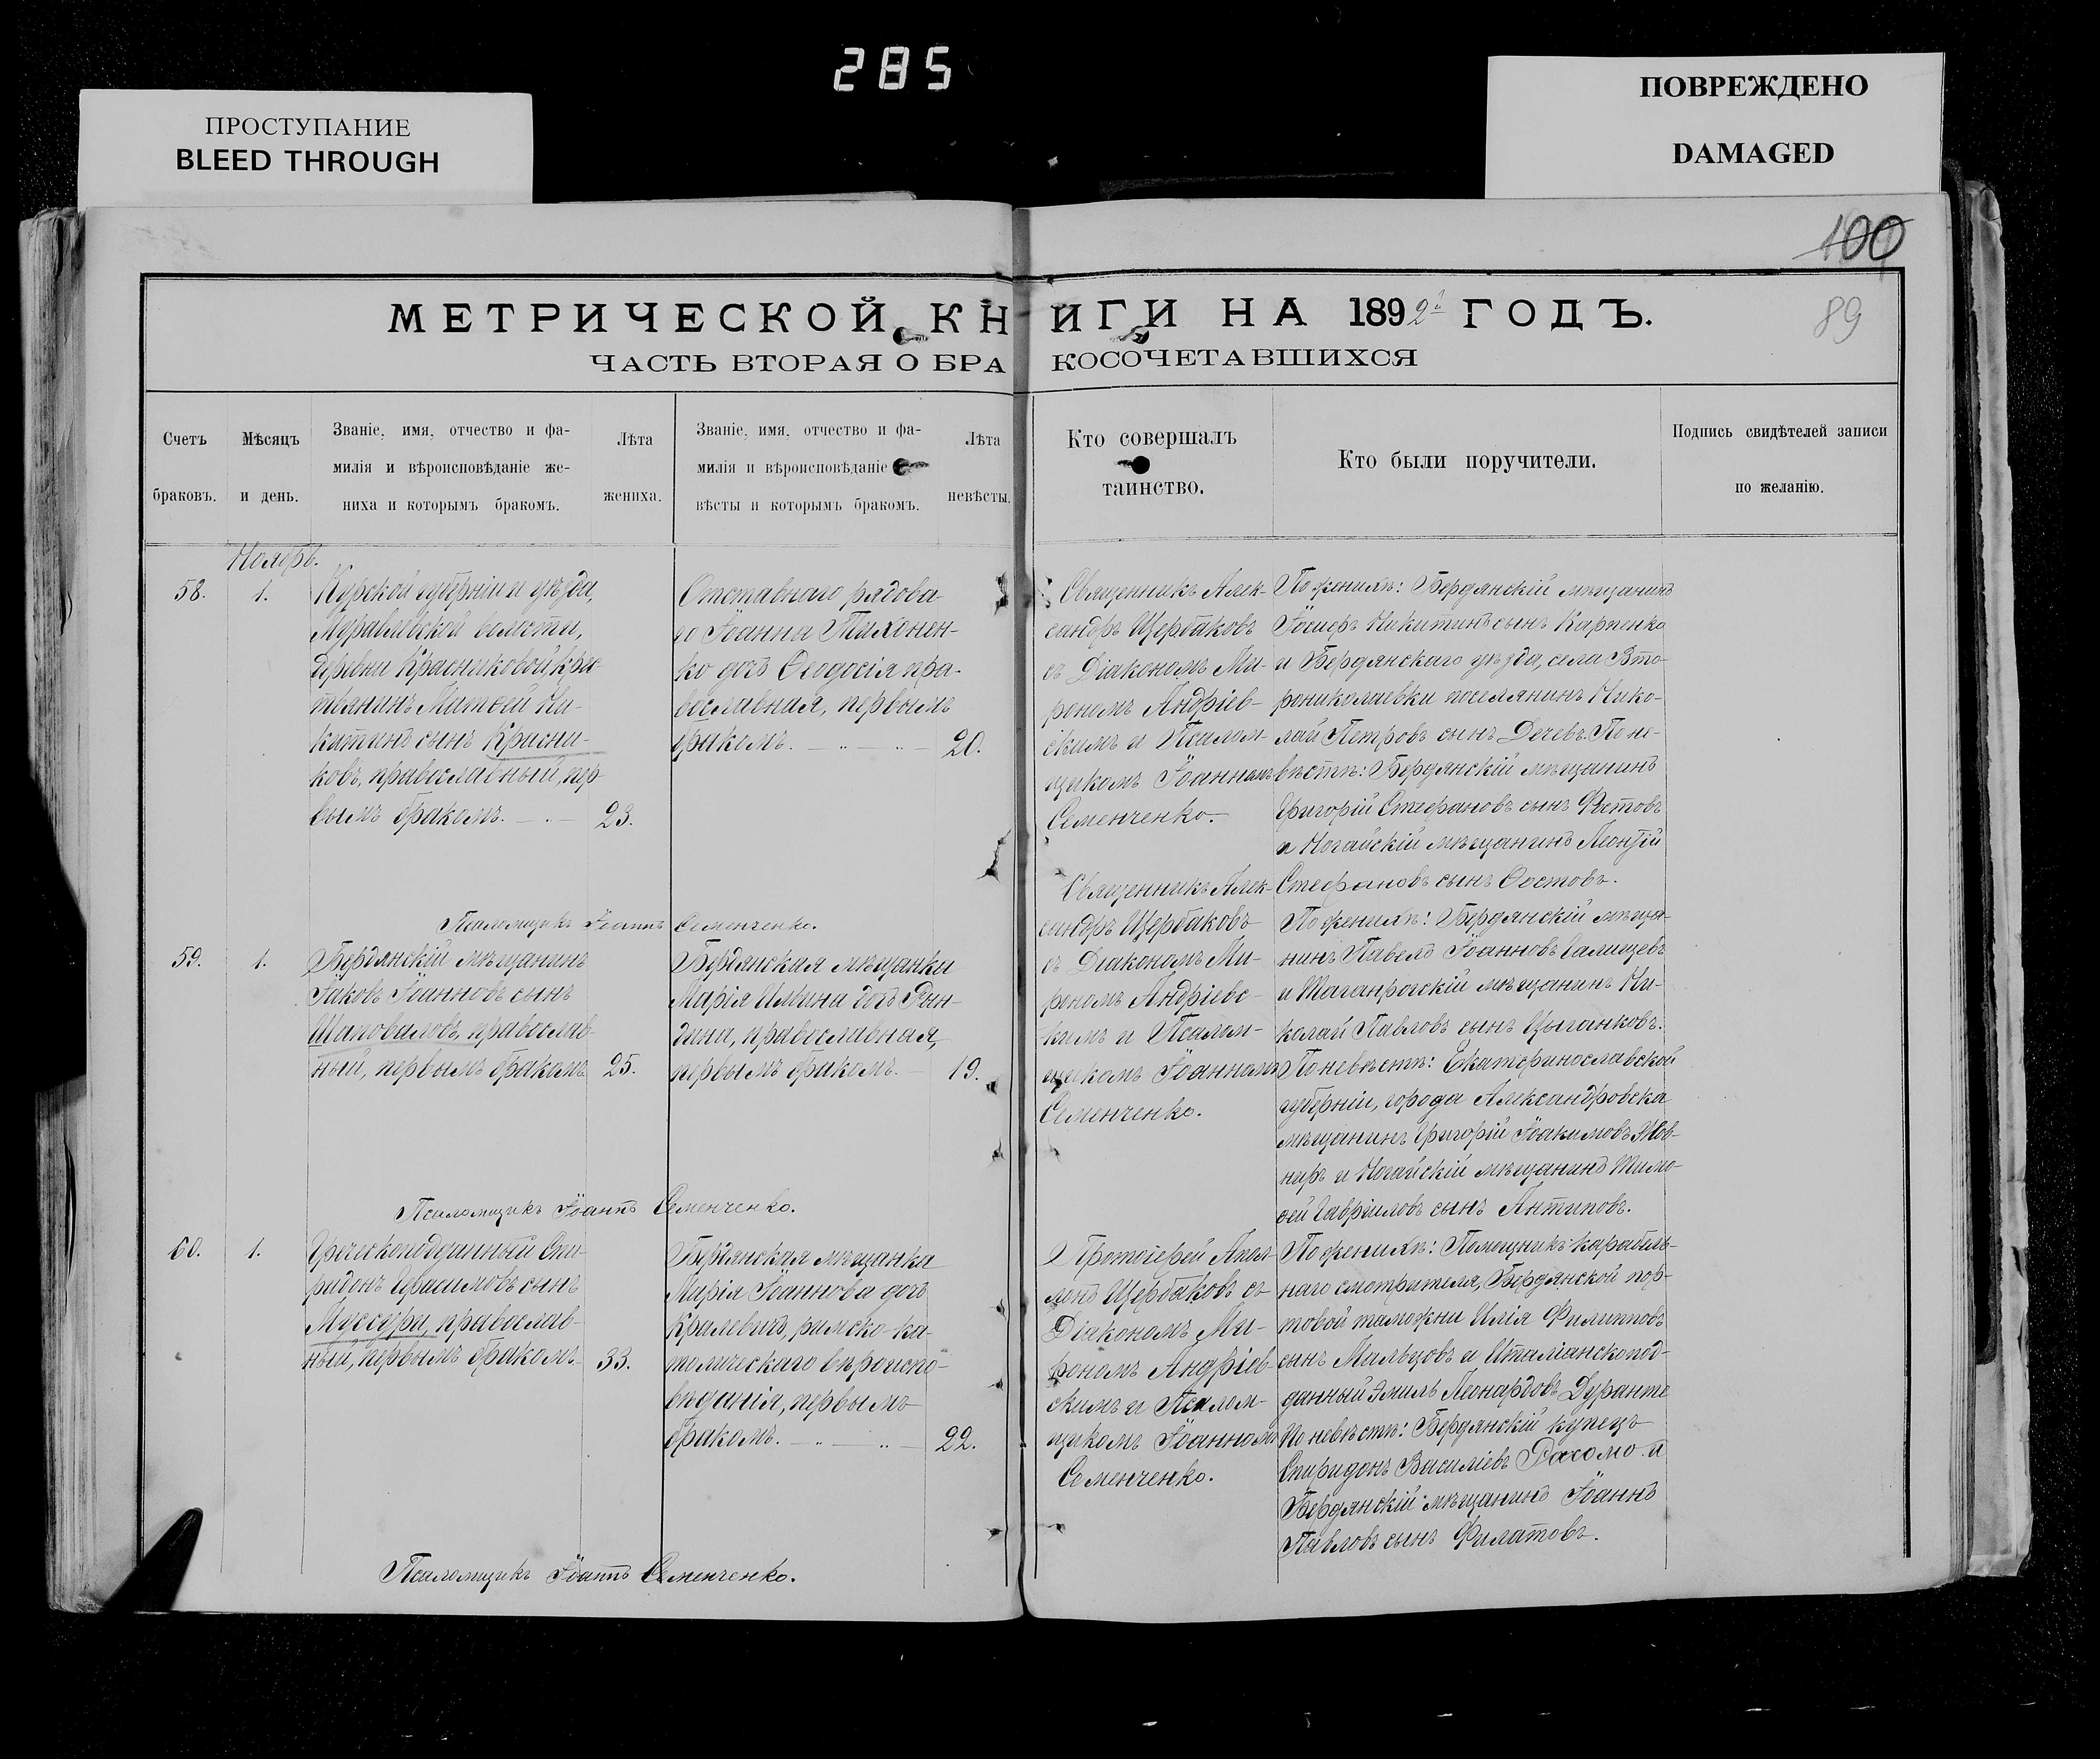 285
ПРОСТУПАНИЕ
BLEED THROUGH
ПОВРЕЖДЕНО
DAMAGED
100
89
МЕТРИЧЕСКОЙ КНИГИ НА 1892й ГОДЪ.
ЧАСТЬ ВТОРАЯ О БРАКОСОЧЕТАВШИХСЯ
Счетъ
браковъ.
Мѣсяцъ
и день.
Званіе, имя, отчество и фа-
милія и вѣроисповѣданіе же-
ниха и которымъ бракомъ.
Лѣта
жениха.
Званіе, имя, отчество и фа-
милія и вѣроисповѣданіе
вѣсты и которымъ бракомъ.
Лѣта
невѣсты.
Кто совершалъ
таинство.
Кто были поручители.
Подпись свидѣтелей записи
по желанію.
Ноябрь.
58.
1.
Курской губерніи и уѣзда,
Муравлевской волости,
деревни Красниковой, кре-
стьянинъ Матѳей Ни-
китинъ сынъ Красни-
ковъ, православный, пер-
вымъ бракомъ.
23.
Отставнаго рядова-
го Іоанна Тихонен-
ко дочь Ѳеодосія пра-
вославная, первымъ
бракомъ.
20.
Священникъ Алек-
сандръ Щербаковъ
съ Діакономъ Ми-
рономъ Андріев-
скимъ и Псалом-
щикомъ Іоанномъ
Семенченко.
По женихѣ: Бердянскій мѣщанинъ
Іосифъ Никитинъ сынъ Карпенко
и Бердянскаго уѣзда, села Вто-
рониколаевки поселянинъ Нико-
лай Петровъ сынъ Дечевъ. По не-
вѣстѣ: Бердянскій мѣщанинъ
Григорій Стефановъ сынъ Фостовъ
и Ногайскій мѣщанинъ Леонтій
Стефановъ сынъ Ѳостовъ.
Псаломщикъ Іоаннъ Семенченко.
59.
1.
Бердянскій мѣщанинъ
Іаковъ Іоанновъ сынъ
Шаповаловъ, православ-
ный, первымъ бракомъ
25.
Бердянская мѣщанка
Марія Ильина дочь Рын-
дина, православная,
первымъ бракомъ.
19.
Священникъ Алек-
сандръ Щербаковъ
съ Діакономъ Ми-
рономъ Андріевс-
кимъ и Псалом-
щикомъ Іоанномъ
Семенченко.
По женихѣ: Бердянскій мѣща-
нинъ Павелъ Іоанновъ Салищевъ
и Таганрогскій мѣщанинъ Ни-
колай Павловъ сынъ Цыганковъ.
По невѣстѣ: Екатеринославской
губерніи, города Александровска
мѣщанинъ Григорій Іоакимовъ Жов-
ниръ и Ногайскій мѣщанинъ Тимо-
ѳей Гавріиловъ сынъ Антиповъ.
Псаломщикъ Іоаннъ Семенченко.
60.
1.
Греческоподданный Спи-
ридонъ Герасимовъ сынъ
Муссури, православ-
ный, первымъ бракомъ
33.
Бердянская мѣщанка
Марія Іоаннова дочь
Кралевичъ, римско-ка-
толическаго вѣроиспо-
вѣданія, первымъ
бракомъ.
22.
Протоіерей Апол-
лонъ Щербаковъ съ
Діакономъ Ми-
рономъ Андріев-
скимъ и Псалом-
щикомъ Іоанномъ
Семенченко.
По женихѣ: Помощникъ карабель-
наго смотрителя, Бердянской пор-
товой таможни Илія Филипповъ
сынъ Мальцовъ и Италіанскопод-
данный Эмиль Леонардовъ Дуранте
По невѣстѣ: Бердянскій купецъ
Спиридонъ Василіевъ Рахомо и
Бердянскій мѣщанинъ Іоаннъ
Павловъ сынъ Филатовъ.
Псаломщикъ Іоаннъ Семенченко.